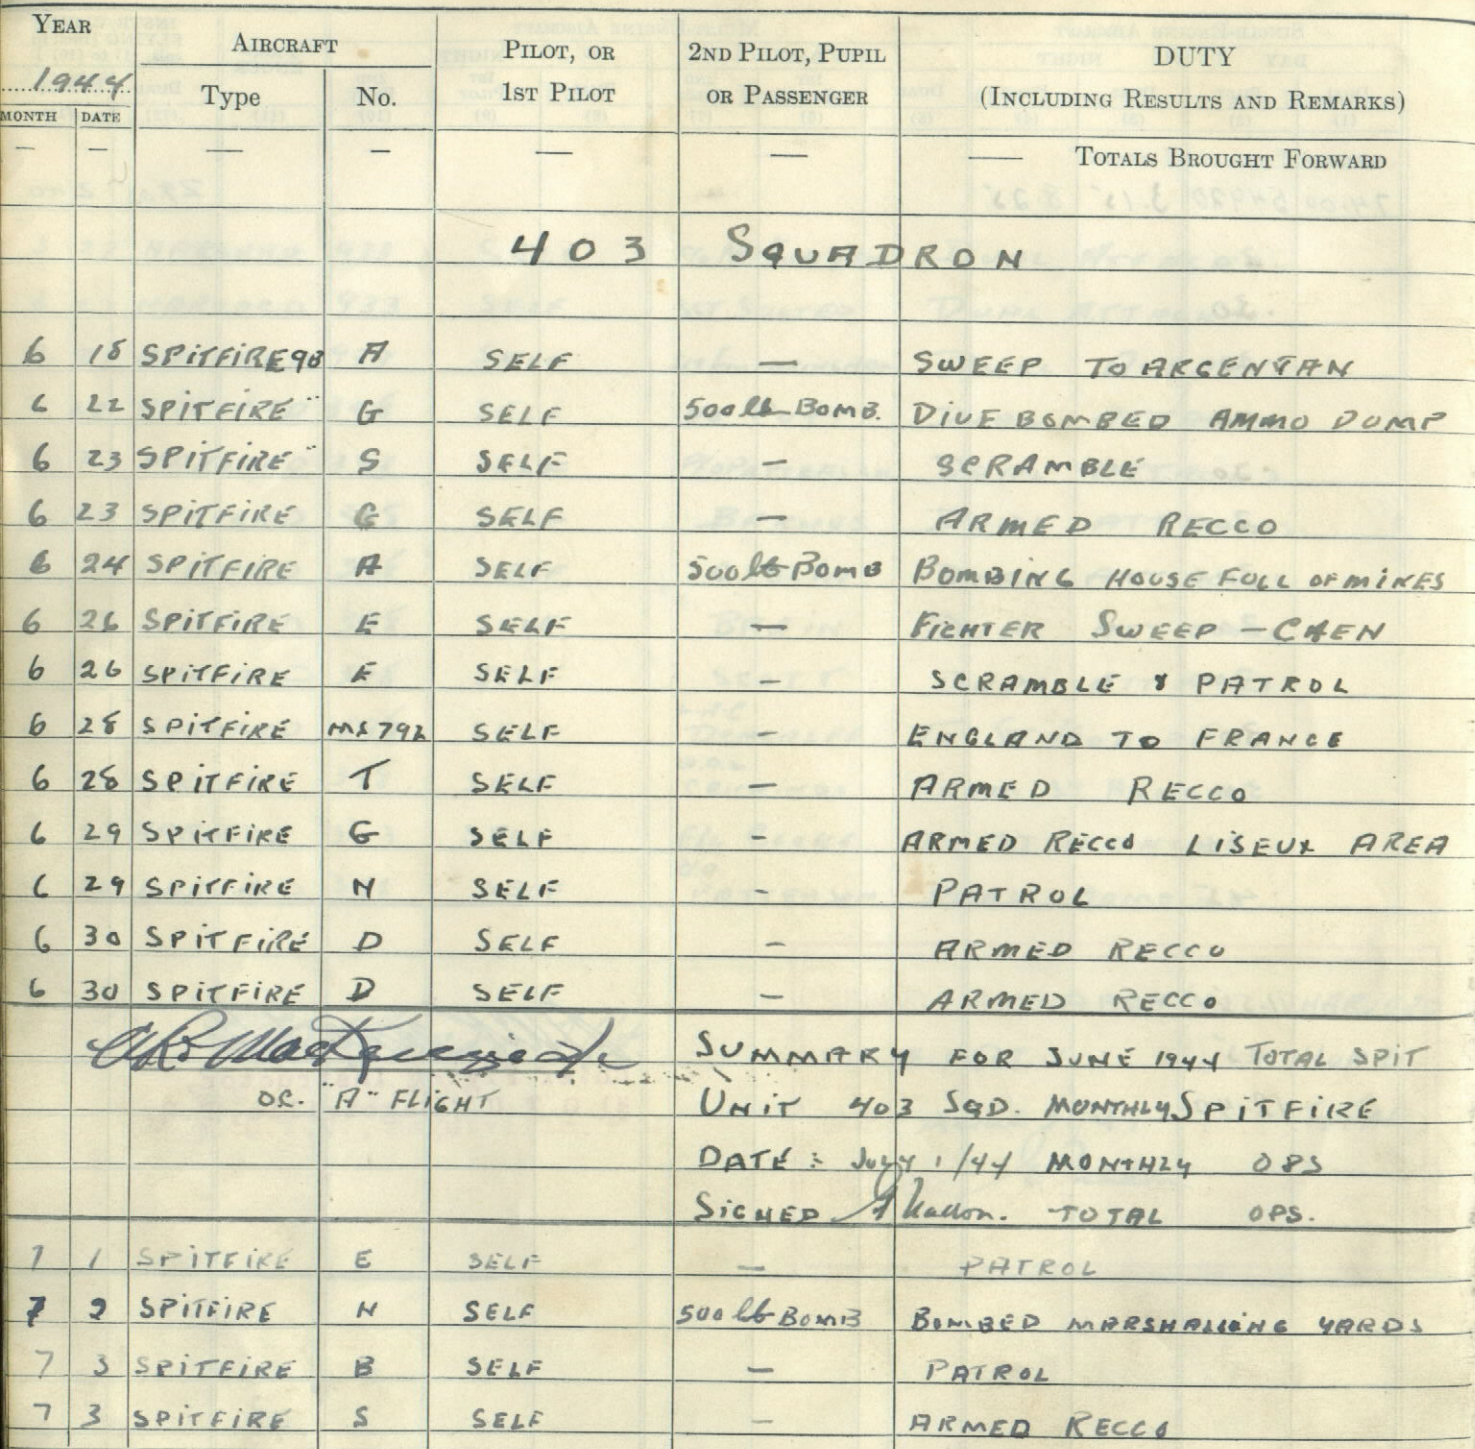 YEAR AIRCRAFT PILOT, OR 2ND PILOT, PUPIL DUTY
1944 Type No. 1ST PILOT OR PASSENGER (INCLUDING RESULTS AND REMARKS)
MONTH DATE
— — — — — — — TOTALS BROUGHT FORWARD
403 SQUADRON
6 18 SPITFIRE 9B A SELF — SWEEP TO ARGENTAN
6 22 SPITFIRE " G SELF 500 lb BOMB. DIVE BOMBED AMMO DUMP
6 23 SPITFIRE " S SELF — SCRAMBLE
6 23 SPITFIRE G SELF — ARMED RECCO
6 24 SPITFIRE A SELF 500 lb BOMB BOMBING HOUSE FULL OF MINES
6 26 SPITFIRE E SELF — FIGHTER SWEEP – CAEN
6 26 SPITFIRE E SELF — SCRAMBLE & PATROL
6 28 SPITFIRE 792 SELF – ENGLAND TO FRANCE
6 28 SPITFIRE T SELF — ARMED RECCO
6 29 SPITFIRE G SELF – ARMED RECCO LISEUX AREA
6 29 SPITFIRE N SELF – PATROL
6 30 SPITFIRE D SELF – ARMED RECCO
6 30 SPITFIRE D SELF – ARMED RECCO
SUMMARY FOR JUNE 1944 TOTAL SPIT
OC. "A" FLIGHT UNIT 403 SQD. MONTHLY SPITFIRE
DATE: July 1/44 MONTHLY OPS
SIGNED TOTAL OPS.
7 1 SPITFIRE E SELF — PATROL
7 2 SPITFIRE N SELF 500 lb BOMB BOMBED MARSHALLING YARDS
7 3 SPITFIRE B SELF — PATROL
7 3 SPITFIRE S SELF — ARMED RECCO